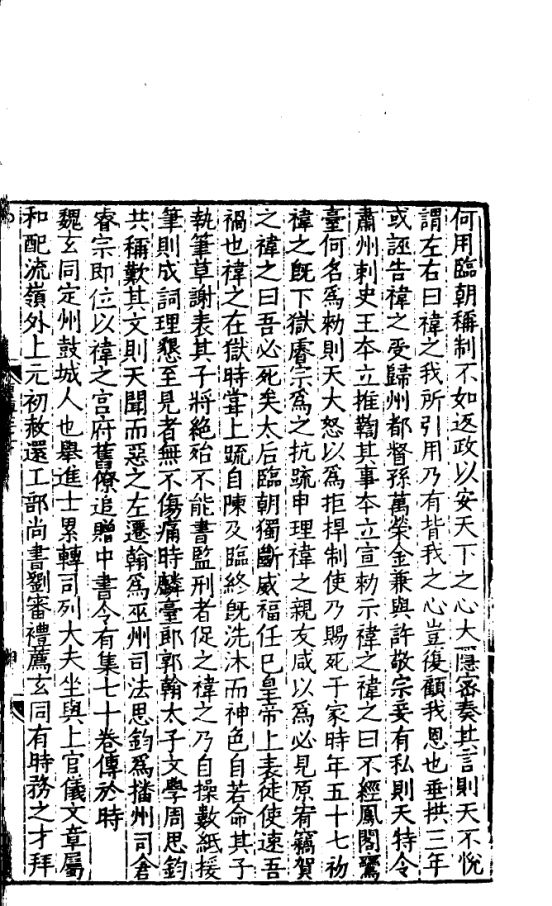 何用臨朝稱制不如返政以安天下之心大隱密奏其言則天不悅
謂左右曰禕之我所引用乃有背我之心豈復顧我恩也垂拱三年
或誣告禕之受歸州都督孫萬榮金兼與許敬宗妾有私則天特令
肅州刺史王夲立推鞫其事夲立宣勑示禕之禕之曰不經鳳閣鸞
臺何名爲勑則天大怒以爲拒捍制使乃賜死于家時年五十七初
禕之旣下獄睿宗爲之抗䟽申理禕之親友咸以爲必見原宥竊賀
之禕之曰吾必死矣太后臨朝獨斷威福任巳皇帝上表徒使速吾
禍也禕之在獄時甞上䟽自陳及臨終旣洗沐而神色自若命其子
執筆草謝表其子將絶殆不能書監刑者促之禕之乃自操數紙援
筆則成詞理懇至見者無不傷痛時麟臺郎郭翰太子文學周思鈞
共稱歎其文則天聞而惡之左遷翰爲巫州司法思鈞爲播州司倉
睿宗即位以禕之宫府舊僚追贈中書令有集七十卷傳於時
魏玄同定州鼓城人也舉進士累轉司列大夫坐與上官儀文章屬
和配流嶺外上元初赦還工部尚書劉審禮薦玄同有時務之才拜